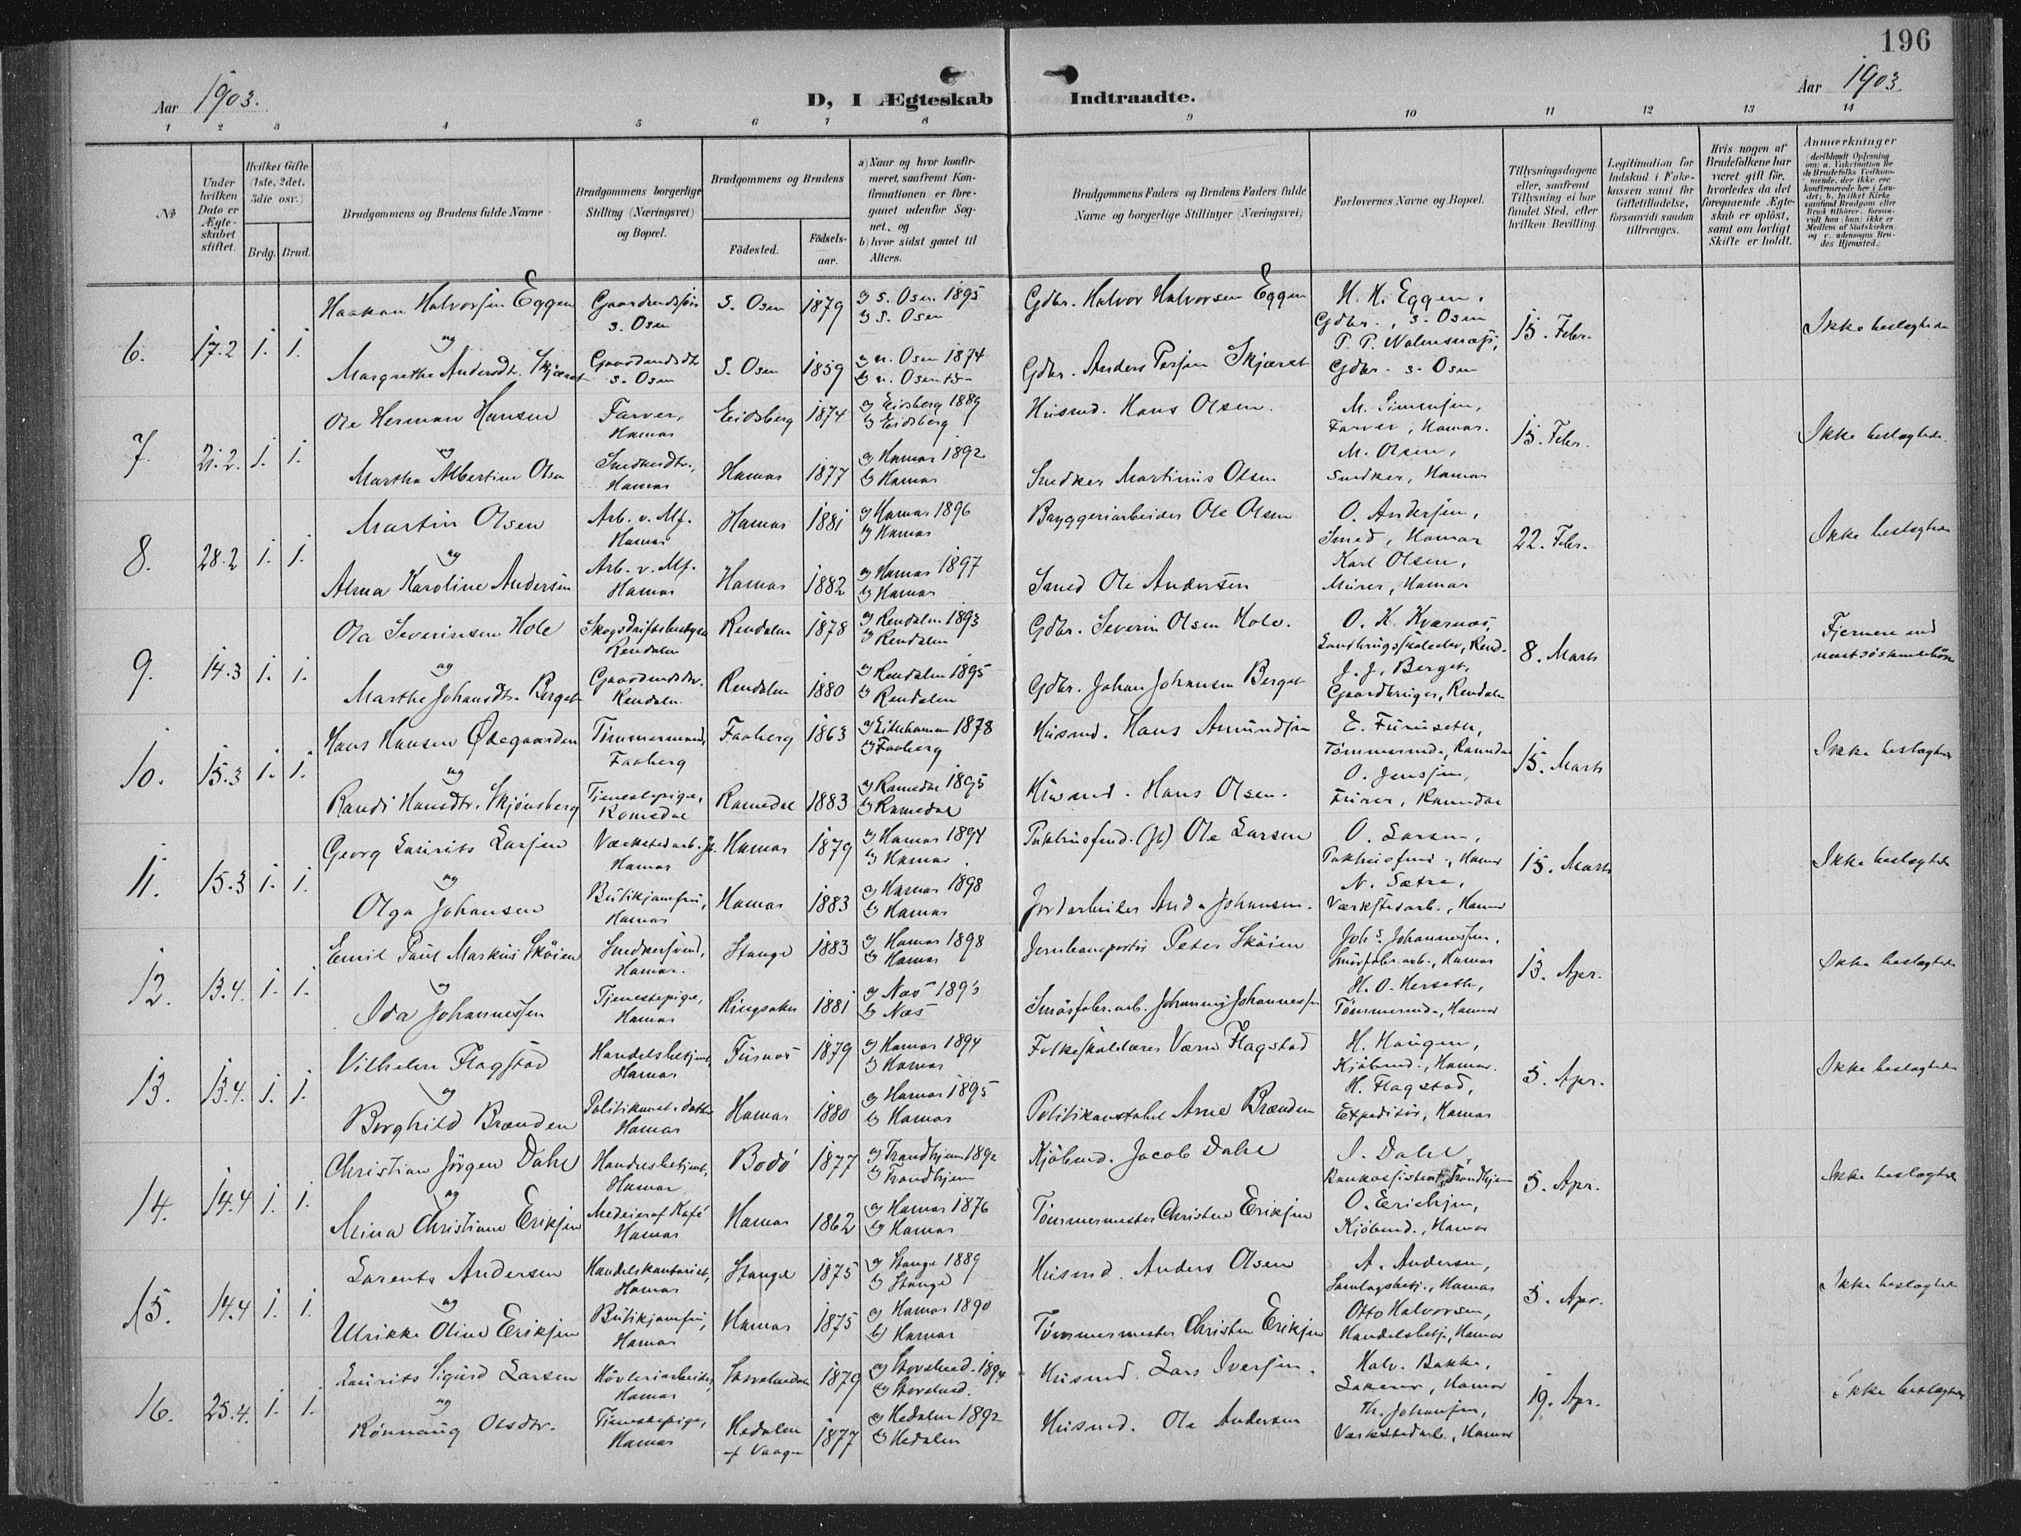 196
Aar 1903. D, I Ægteskab Indtraadte. Aar 1903.
1 2 3 4 5 6 7 8 9 10 11 12 13 14
№
Under hvilken Dato er Ægteskabet stiftet.
Hvilket Gifte (1ste, 2det, 3die osv.)
Brdg. Brud.
Brudgommens og Brudens fulde Navne
Brudgommens borgerlige Stilling (Næringsvei) og Bopæl.
Brudgommens og Brudens
Födested. Födsels-aar.
a) Naar og hvor konfirmeret, saafremt Konfirmationen er foregaaet udenfor Sognet, og
b) hvor sidst gaaet til Alters.
Brudgommens Faders og Brudens Faders fulde Navne og borgerlige Stillinger (Næringsvei)
Forlovernes Navne og Bopæl.
Tillysningsdagene eller, saafremt Tillysning ei har fundet Sted, efter hvilken Bevilling.
Legitimation for Indskud i Enkekassen samt for Giftetilladelse, forsaavidt saadan tiltrænges.
Hvis nogen af Brudefolkene har været gift før, hvorledes da det foregaaende Ægteskab er oplöst, samt om lovligt Skifte er holdt.
Anmærkninger
6. 17.2 1. 1.
Haakon Halvorsen Eggen Gaardmandssøn S. Osen S. Osen 1879 a) S. Osen 1895 b) S. Osen Gdbr. Halvor Halvorsen Eggen H. H. Eggen, Gdbr., S. Osen 15. Febr. Ikke beslægtede
og
Margrethe Andersdtr. Skjæret Gaardmandsdtr. S. Osen S. Osen 1859 a) n. Osen 1874 b) n. Osen Gdbr. Anders Persen Skjæret Gdbr. S. Osen
7. 21.2. 1. 1.
Ole Herman Hansen Farver, Hamar Eidsberg 1874 a) Eidsberg 1889 b) Eidsberg Husmd. Hans Olsen. M. Simensen, Farver, Hamar. 15. Febr. Ikke beslægtede
og
Martha Albertine Olsen Snedkerdtr., Hamar Hamar 1877 a) Hamar 1892 b) Hamar Snedker Martinius Olsen M. Olsen, Snedker, Hamar
8. 28.2 1. 1.
Martin Olsen Arb. v. Mf. Hamar Hamar 1881 a) Hamar 1896 b) Hamar Bryggeriarbeider Ole Olsen O. Andersen, Smed, Hamar 22. Febr. Ikke beslægtede
og
Alma Karoline Andersen Arb. v. Mf. Hamar Hamar 1882 a) Hamar 1897 b) Hamar Smed Ole Andersen Karl Olsen, Murer, Hamar
9. 14.3 1. 1.
Ola Severinsen Hole Skogsdriftsbestyrer Rendalen Rendalen 1878 a) Rendalen 1893 b) Rendalen Gdbr. Severin Olsen Hole. O. H. Kværnæs, 8. Marts Fjernere end
og
Marthe Johansdtr. Berget Gaardmdsdtr. Rendalen Rendalen 1880 a) Rendalen 1895 b) Rendalen Gdbr. Johan Johansen Berget J. J. Berget, Gaardbruger, Rendalen
10. 15.3 1. 1.
Hans Hansen Ødegaarden Tømmermand, Faaberg Faaberg 1863 a) Lillehammer 1878 b) Faaberg Husmd. Hans Amundsen E. Furuseth, Tømmermd., Romedal 15. Marts Ikke beslægtede
og
Randi Hansdtr. Skjønsberg Tjenestepige, Romedal Romedal 1883 a) Romedal 1895 b) Romedal Husmd. Hans Olsen. O. Jenssen, Furer, Romedal
11. 15.3 1. 1.
Georg Laurits Larsen Værkstedarb. Hamar Hamar 1879 a) Hamar 1894 b) Hamar Pakhusfmd. Ole Larsen O. Larsen, Pakhusfmd., Hamar 15. Marts Ikke beslægtede
og
Olga Johansen Butikjomfru, Hamar Hamar 1883 a) Hamar 1898 b) Hamar Jordarbeider And. Johansen. N. Sætre, Værkstedarb., Hamar
12. 13.4. 1. 1.
Emil Paul Markus Skøien Snedkersvend, Hamar. Stange 1883 a) Hamar 1898 b) Hamar Jernbanportør Peter Skøien Johs. Johannessen, Smörfabr.arb., Hamar 13. Apr. Ikke beslægtede
og
Oda Johannessen Tjenestepige, Hamar Ringsaker 1881 a) Næs 1895 b) Næs Smörfabr.arb. Johannes Johannessen H. O. Herseth, Tømmermd., Hamar
13. 13.4. 1. 1.
Vilhelm Flagstad Handelsbetjent, Hamar Furnes 1879 a) Hamar 1894 b) Hamar Folkeskolelærer Flagstad H. Haugen, Kjöbmd., Hamar. 5. Apr. Ikke beslægtede
og
Borghild Brænden Politikonst. datter Hamar Hamar 1880 a) Hamar 1895 b) Hamar Politikonstabel Arne Brænden H. Flagstad, Expeditör, Hamar
14. 14.4 1. 1.
Christian Jörgen Dahl Handelsbetjent, Hamar Bodö 1877 a) Trondhjem 1892 b) Trondhjem Kjöbmd. Jacob Dahl J. Dahl, Bankassistent, Trondhjem 5. Apr. Ikke beslægtede
og
Mina Christiane Eriksen Medeier af Kafé Hamar Hamar 1862 a) Hamar 1876 b) Hamar Tömmermester Christen Eriksen O. Erichsen, Kjöbmd., Hamar
15. 14.4 1. 1.
Lorents Andersen Handelskontorist, Hamar Stange 1875 a) Stange 1889 b) Stange Husmd. Anders Olsen A. Andersen, Samlagsbetj., Hamar 5. Apr. Ikke beslægtede
og
Ulrikke Oline Eriksen Butikjomfru, Hamar Hamar 1875 a) Hamar 1890 b) Hamar Tömmermester Christen Eriksen Otto Halvorsen, Handelsbetj., Hamar
16. 25.4. 1. 1.
Laurits Sigurd Larsen Hövleriarbeider, Hamar Storelvedalen 1879 a) Storelved. 1894 b) Storelved. Husmd. Lars Iversen. Halv. Bakke, Hamar 19. Apr. Ikke beslægtede
og
Rønnaug Olsdtr. Tjenestepige, Hamar Hedalen af Vaage 1877 a) Hedalen 1892 b) Hedalen Husmd. Ole Andersen Th. Johansen, Værkstedarb., Hamar